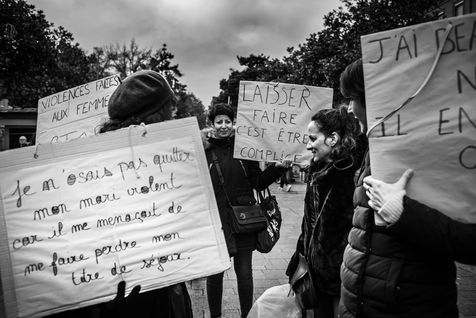 VIOLENCES FAITES
AUX FEMMES
LAISSER
FAIRE
C'EST ÊTRE
COMPLICE
J'AI
EN
je n'osais pas quitter
mon mari violent
car il me menaçait de
me faire perdre mon
titre de séjour.